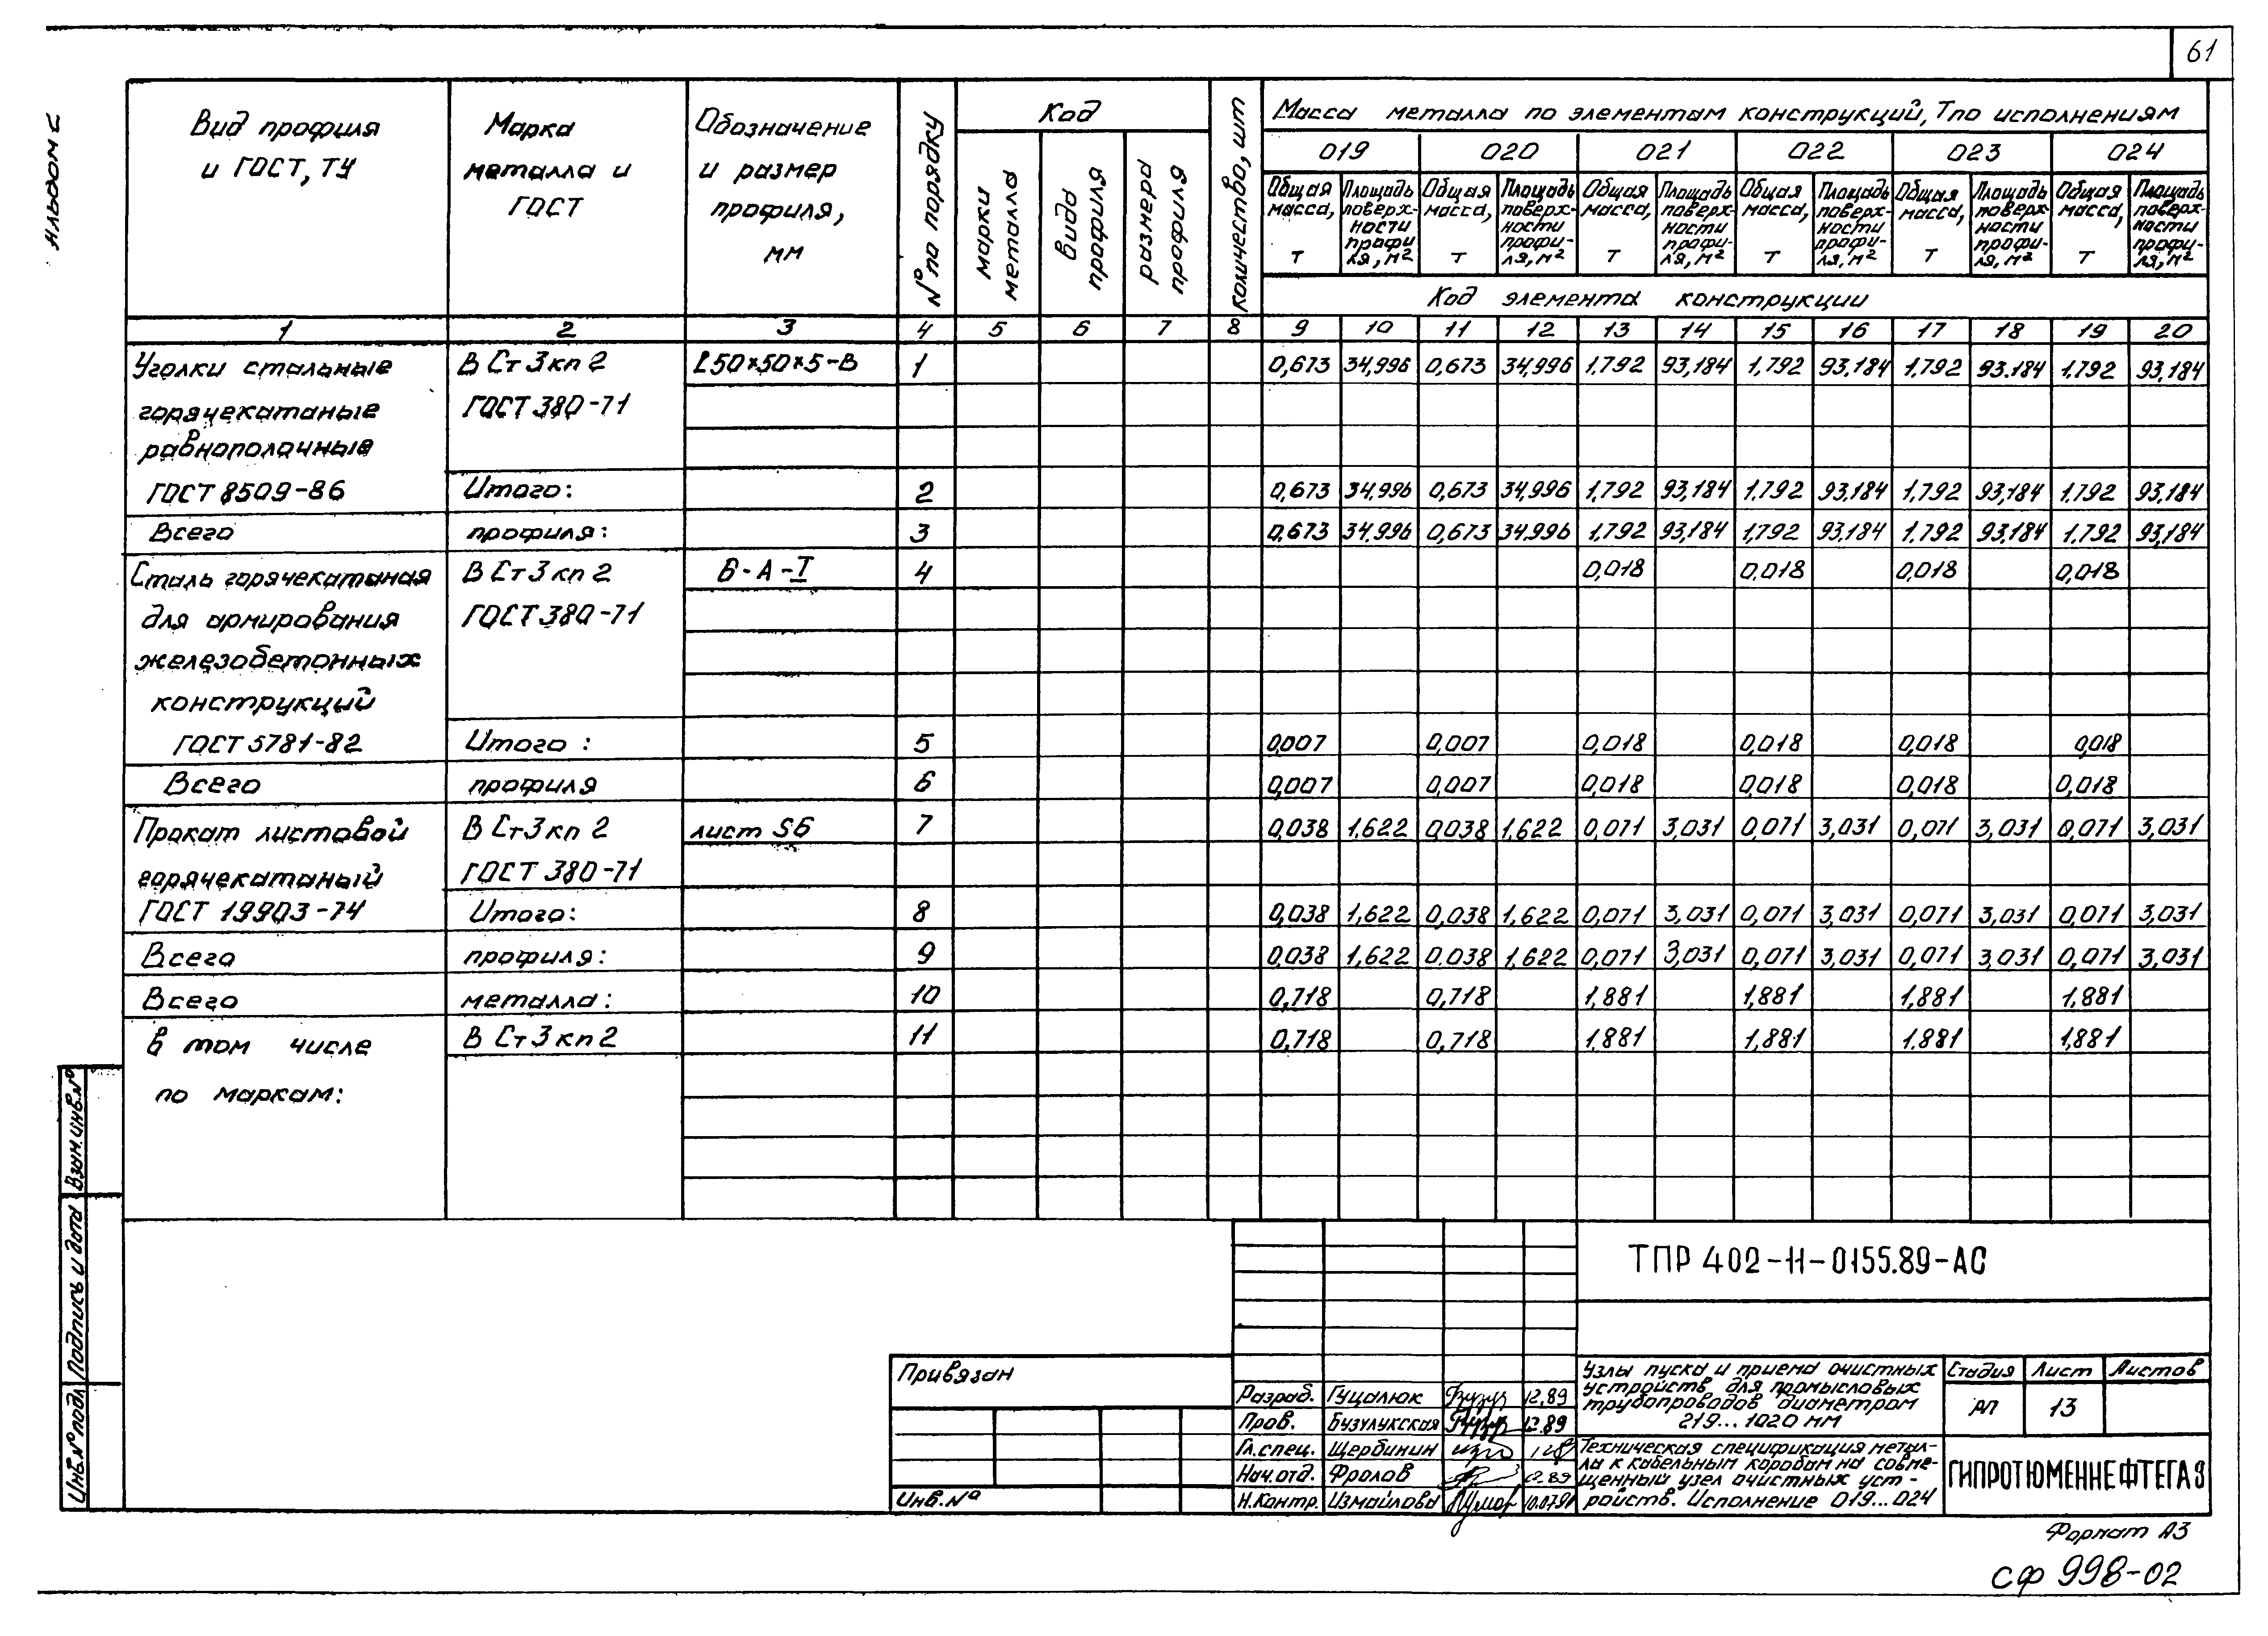 61
Альбом 2
Вид профиля и ГОСТ, ТУ
Марка металла и ГОСТ
Обозначение и размер профиля, мм
№ по порядку
Код
марки металла
вида профиля
размера профиля
количество, шт
Масса металла по элементам конструкций, Т по исполнениям
019 020 021 022 023 024
Общая масса, т Площадь поверхности профиля, м² Общая масса, т Площадь поверхности профиля, м² Общая масса, т Площадь поверхности профиля, м² Общая масса, т Площадь поверхности профиля, м² Общая масса, т Площадь поверхности профиля, м² Общая масса, т Площадь поверхности профиля, м²
Код элемента конструкции
1 2 3 4 5 6 7 8 9 10 11 12 13 14 15 16 17 18 19 20
Уголки стальные В Ст 3 кп 2 L50×50×5-В 1 0,673 34,996 0,673 34,996 1,792 93,184 1,792 93,184 1,792 93,184 1,792 93,184
горячекатаные ГОСТ 380-71
равнополочные
ГОСТ 8509-86 Итого: 2 0,673 34,996 0,673 34,996 1,792 93,184 1,792 93,184 1,792 93,184 1,792 93,184
Всего профиля: 3 0,673 34,996 0,673 34,996 1,792 93,184 1,792 93,184 1,792 93,184 1,792 93,184
Сталь горячекатаная В Ст 3 кп 2 6-А-I 4 0,018 0,018 0,018 0,018
для армирования ГОСТ 380-71
железобетонных
конструкций
ГОСТ 5781-82 Итого: 5 0,007 0,007 0,018 0,018 0,018 0,018
Всего профиля 6 0,007 0,007 0,018 0,018 0,018 0,018
Прокат листовой В Ст 3 кп 2 лист S6 7 0,038 1,622 0,038 1,622 0,071 3,031 0,071 3,031 0,071 3,031 0,071 3,031
горячекатаный ГОСТ 380-71
ГОСТ 19903-74 Итого: 8 0,038 1,622 0,038 1,622 0,071 3,031 0,071 3,031 0,071 3,031 0,071 3,031
Всего профиля: 9 0,038 1,622 0,038 1,622 0,071 3,031 0,071 3,031 0,071 3,031 0,071 3,031
Всего металла: 10 0,718 0,718 1,881 1,881 1,881 1,881
в том числе В Ст 3 кп 2 11 0,718 0,718 1,881 1,881 1,881 1,881
по маркам:
Взам. инв. №
Подпись и дата
Инв. № подл.
ТПР 402-11-0155.89-АС
Привязан
Инв. №
Разраб. Гуцалюк 12.89
Пров. Бузулукская 12.89
Гл. спец. Щербинин
Нач. отд. Фролов 12.89
Н. Контр. Измайлова 10.07.91
Узлы пуска и приема очистных
устройств для промысловых
трубопроводов диаметром
219...1020 мм
Стадия Лист Листов
РП 13
Техническая спецификация метал-
ла к кабельным коробам на совме-
щенный узел очистных уст-
ройств. Исполнение 019...024
ГИПРОТЮМЕННЕФТЕГАЗ
Формат А3
СФ 998-02